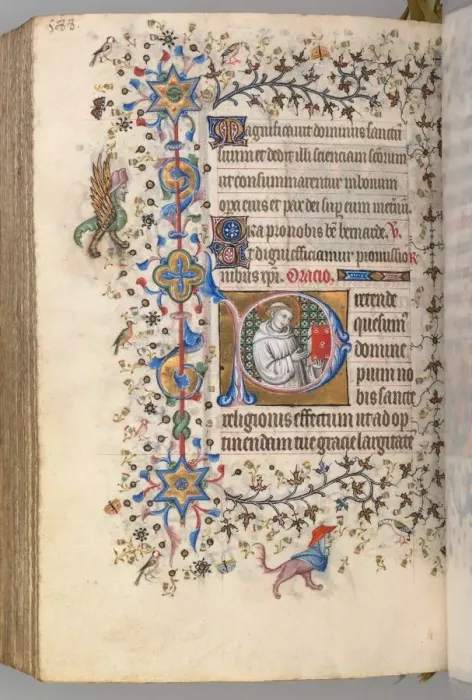 Magnificauit dominus sanctū
suum et dedit illi scienciam sctorum
ut consummarentur in bonum
opa eius et pax dei sup eum
Ora pro nobis bē bernarde. V.
Ut digni efficiamur promissio
nibus xpi. Oracio.
Pretende
quesum⁹
domine
pium no
bis sancte
religionis effectum ut ad op
tinendam tue gracie largitatē